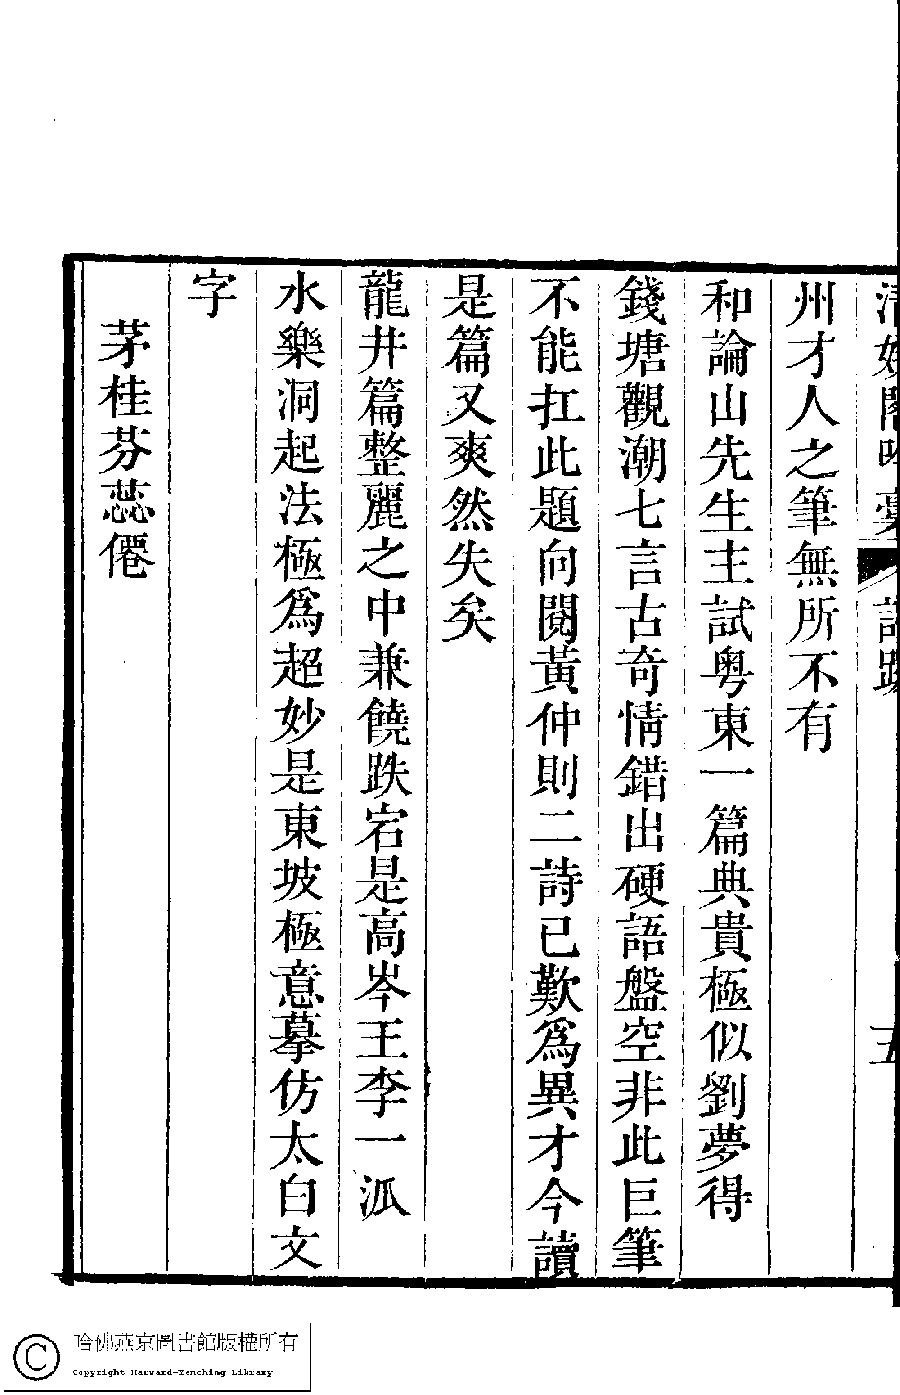 州才人之筆無所不有
和論山先生主試粤東一篇典貴極似劉夢得
錢塘觀潮七言古奇情錯出硬語盤空非此巨筆
不能扛此題向閱黃仲則二詩已歎為異才今讀
是篇又爽然失矣
龍井篇整麗之中兼饒跌宕是高岑王李一派
水樂洞起法極為超妙是東坡極意摹仿太白文
字
茅桂芬蕊僊
哈佛燕京圖書館版權所有
Copyright Harvard-Yenching Library